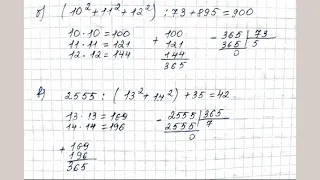 б) (10²+11²+12²) : 73 + 895 = 900
10·10=100
11·11=121
12·12=144
+ 100
121
144
365
- 365 | 73
365 | 5
0
в) 2555 : (13²+14²) + 35 = 42
13·13=169
14·14=196
- 2555 | 365
2555 | 7
0
+ 169
196
365